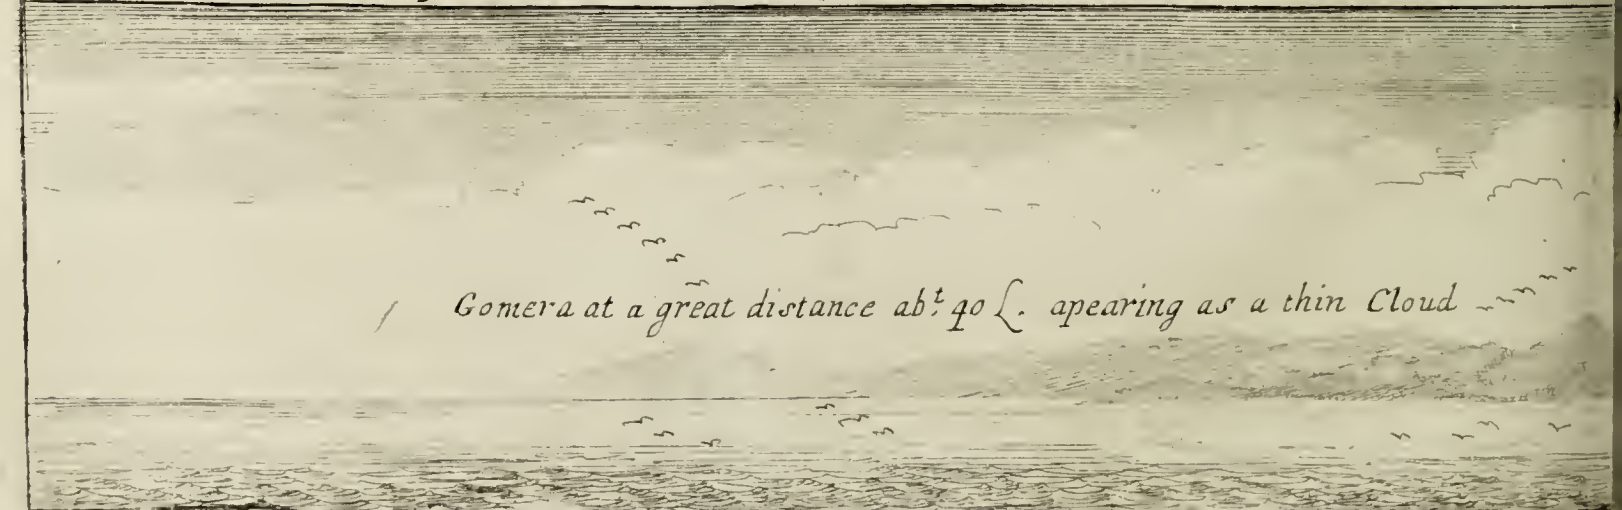 Gomera at a great distance abt. 40 L. apearing as a thin Cloud